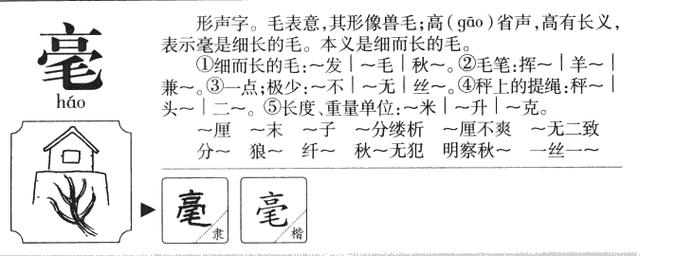 毫
háo
形声字。毛表意,其形像兽毛;高(gāo)省声,高有长义,
表示毫是细长的毛。本义是细而长的毛。
①细而长的毛:～发｜～毛｜秋～。②毛笔:挥～｜羊～｜
兼～。③一点;极少:～不｜～无｜丝～。④秤上的提绳:秤～｜
头～｜二～。⑤长度、重量单位:～米｜～升｜～克。
～厘 ～末 ～子 ～分缕析 ～厘不爽 ～无二致
分～ 狼～ 纤～ 秋～无犯 明察秋～ 一丝一～
毫 隶
毫 楷